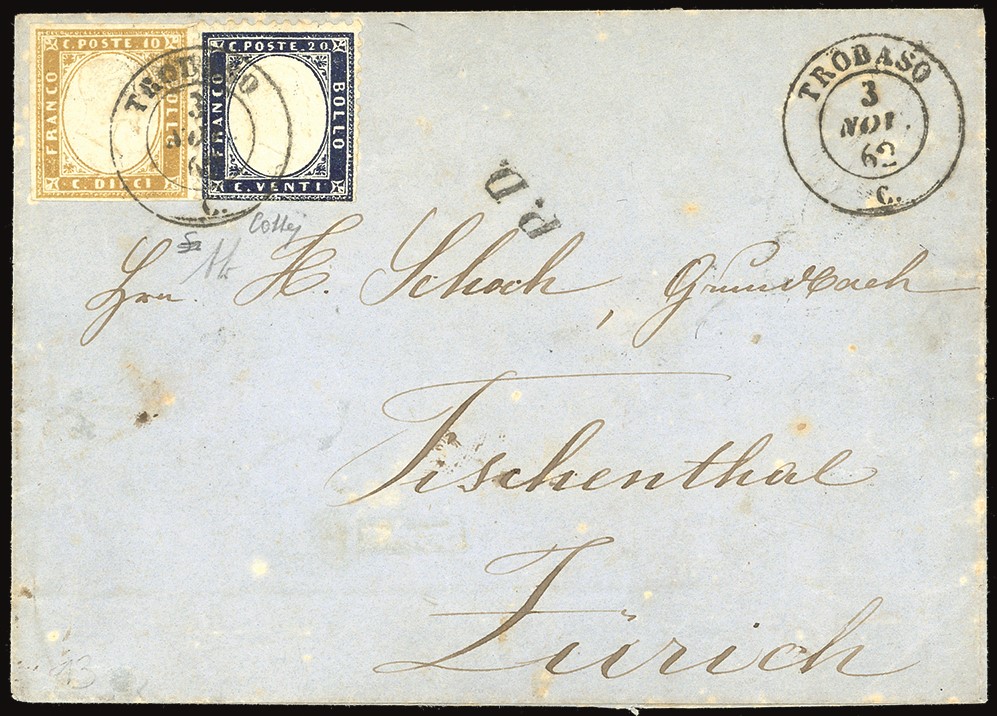 C. POSTE. 10
FRANCO
BOLLO
C. DIECI
C. POSTE. 20
FRANCO
BOLLO
C. VENTI
TROBASO
3
NOV.
62
C.
TROBASO
3
NOV.
62
C.
P.D.
Hrn. H. Schoch, Grundbach
Fischenthal
Zürich